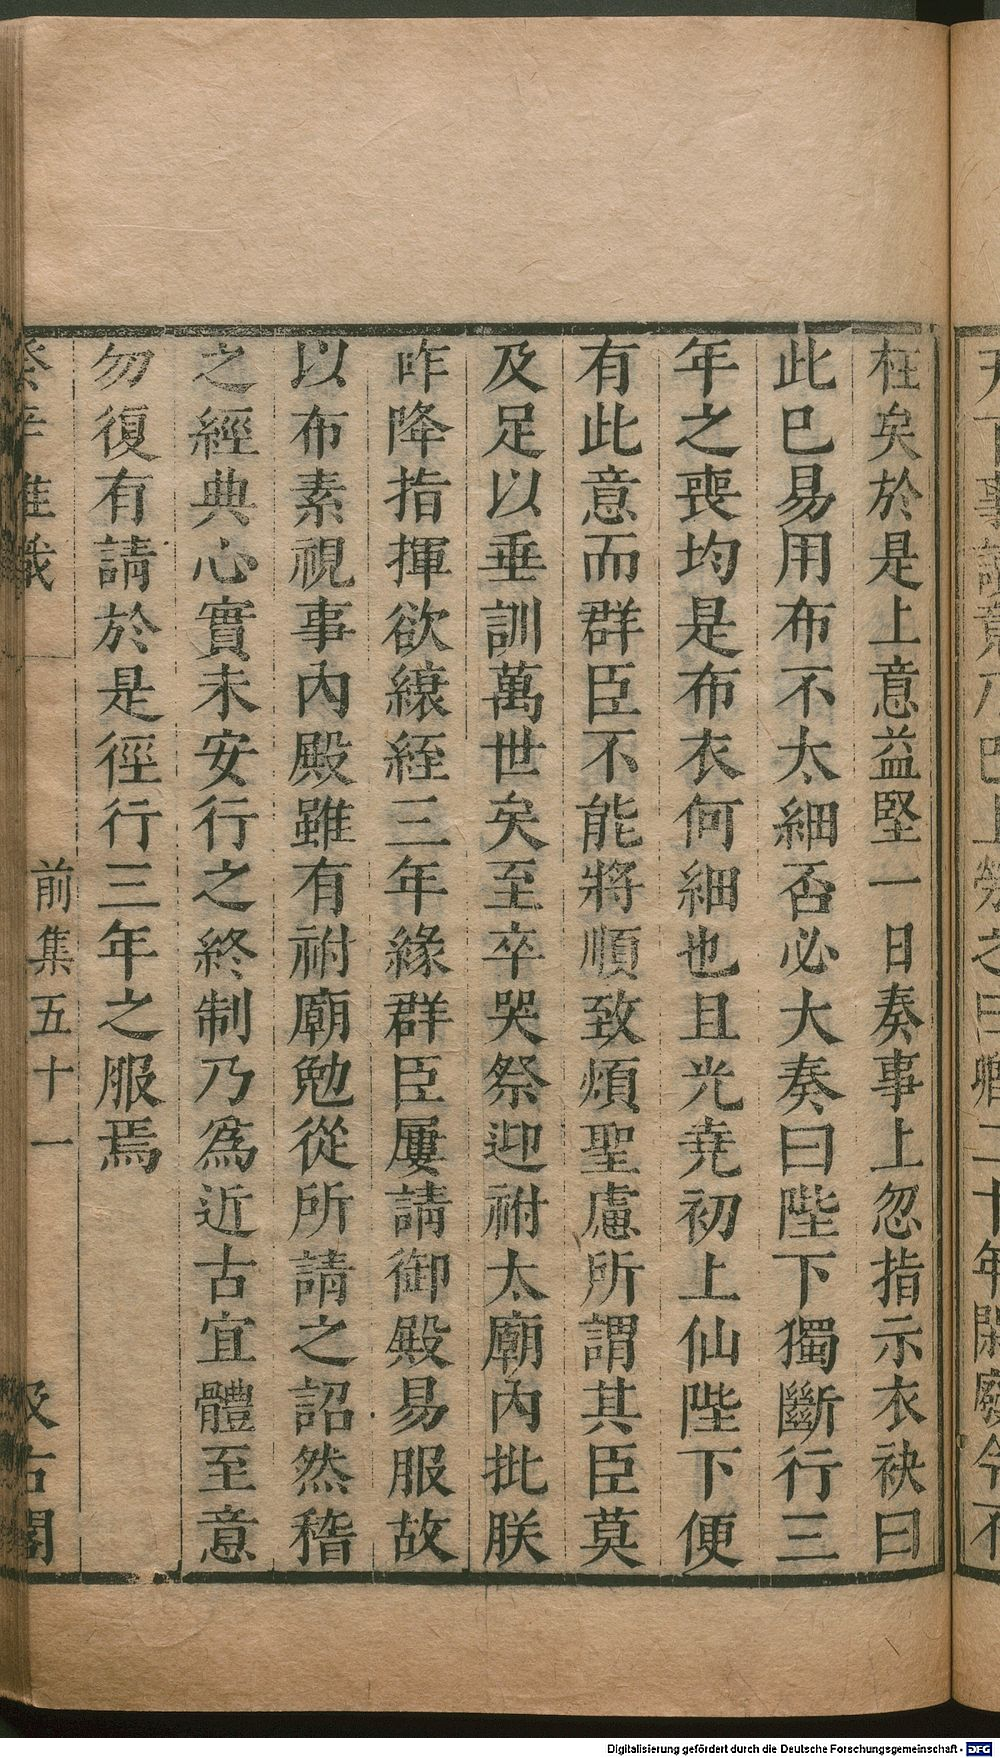 枉矣於是上意益堅一日奏事上忽指示衣袂曰
此巳易用布不太細否必大奏曰陛下獨斷行三
年之喪均是布衣何細也且光堯初上仙陛下便
有此意而群臣不能將順致煩聖慮所謂其臣莫
及足以垂訓萬世矣至卒哭祭迎祔太廟內批朕
昨降指揮欲縗絰三年緣群臣屢請御殿易服故
以布素視事內殿雖有祔廟勉從所請之詔然稽
之經典心實未安行之終制乃爲近古宜體至意
勿復有請於是徑行三年之服焉
癸辛雜識 前集五十一 汲古閣
Digitalisierung gefördert durch die Deutsche Forschungsgemeinschaft - DFG